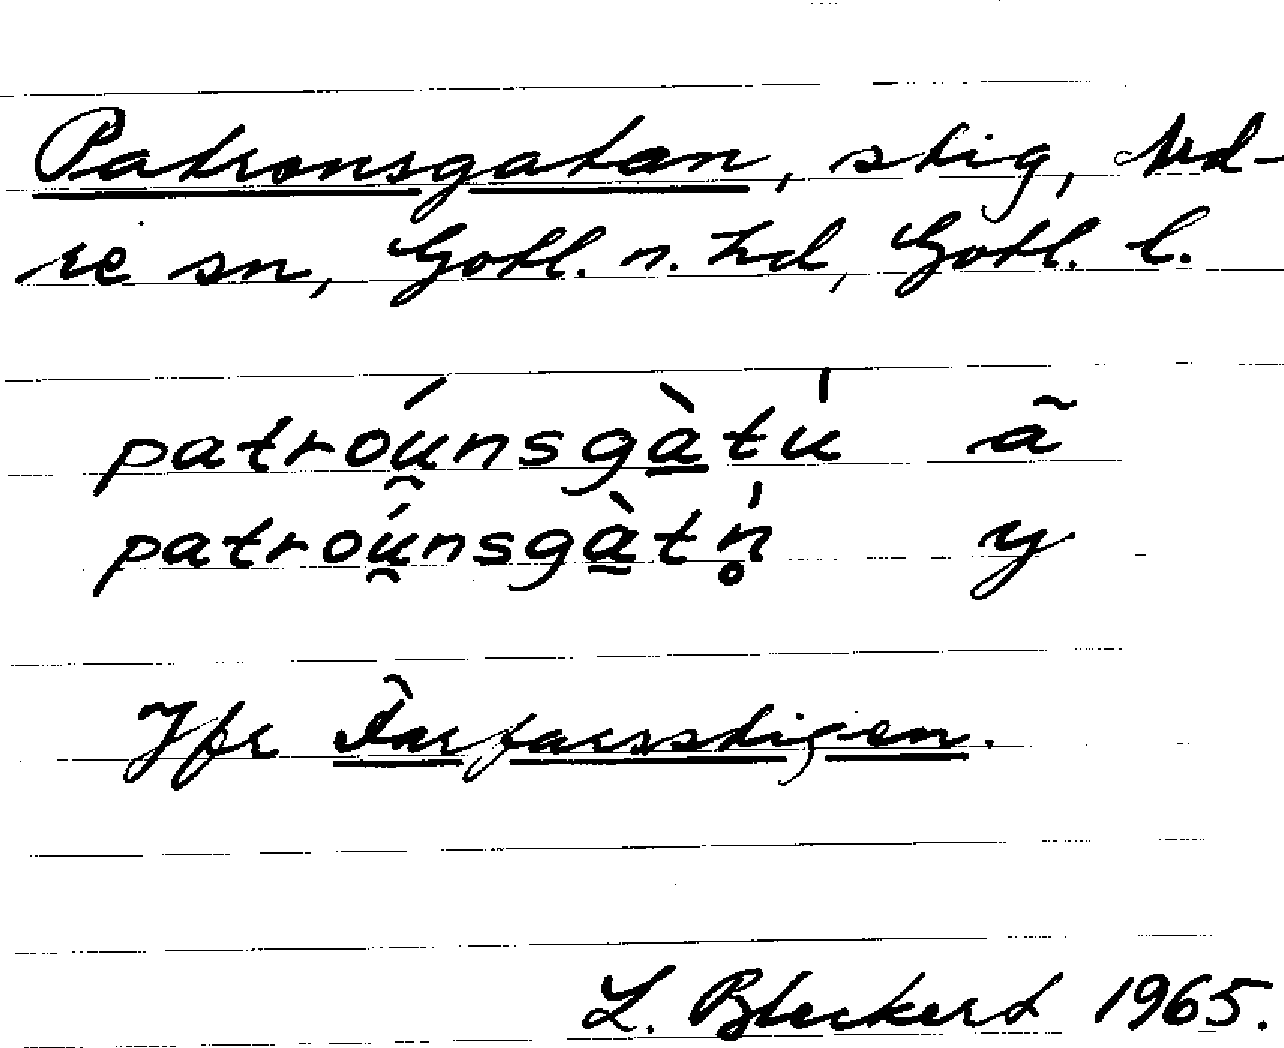 Patronsgatan, stig, End-
re sn, Gotl. n. hd, Gotl. l.
patróu̯nsgà̱tu̍ ã
patróu̯nsgà̱tn̥̍ y
Jfr Farfarsstigen.
L. Bleckert 1965.